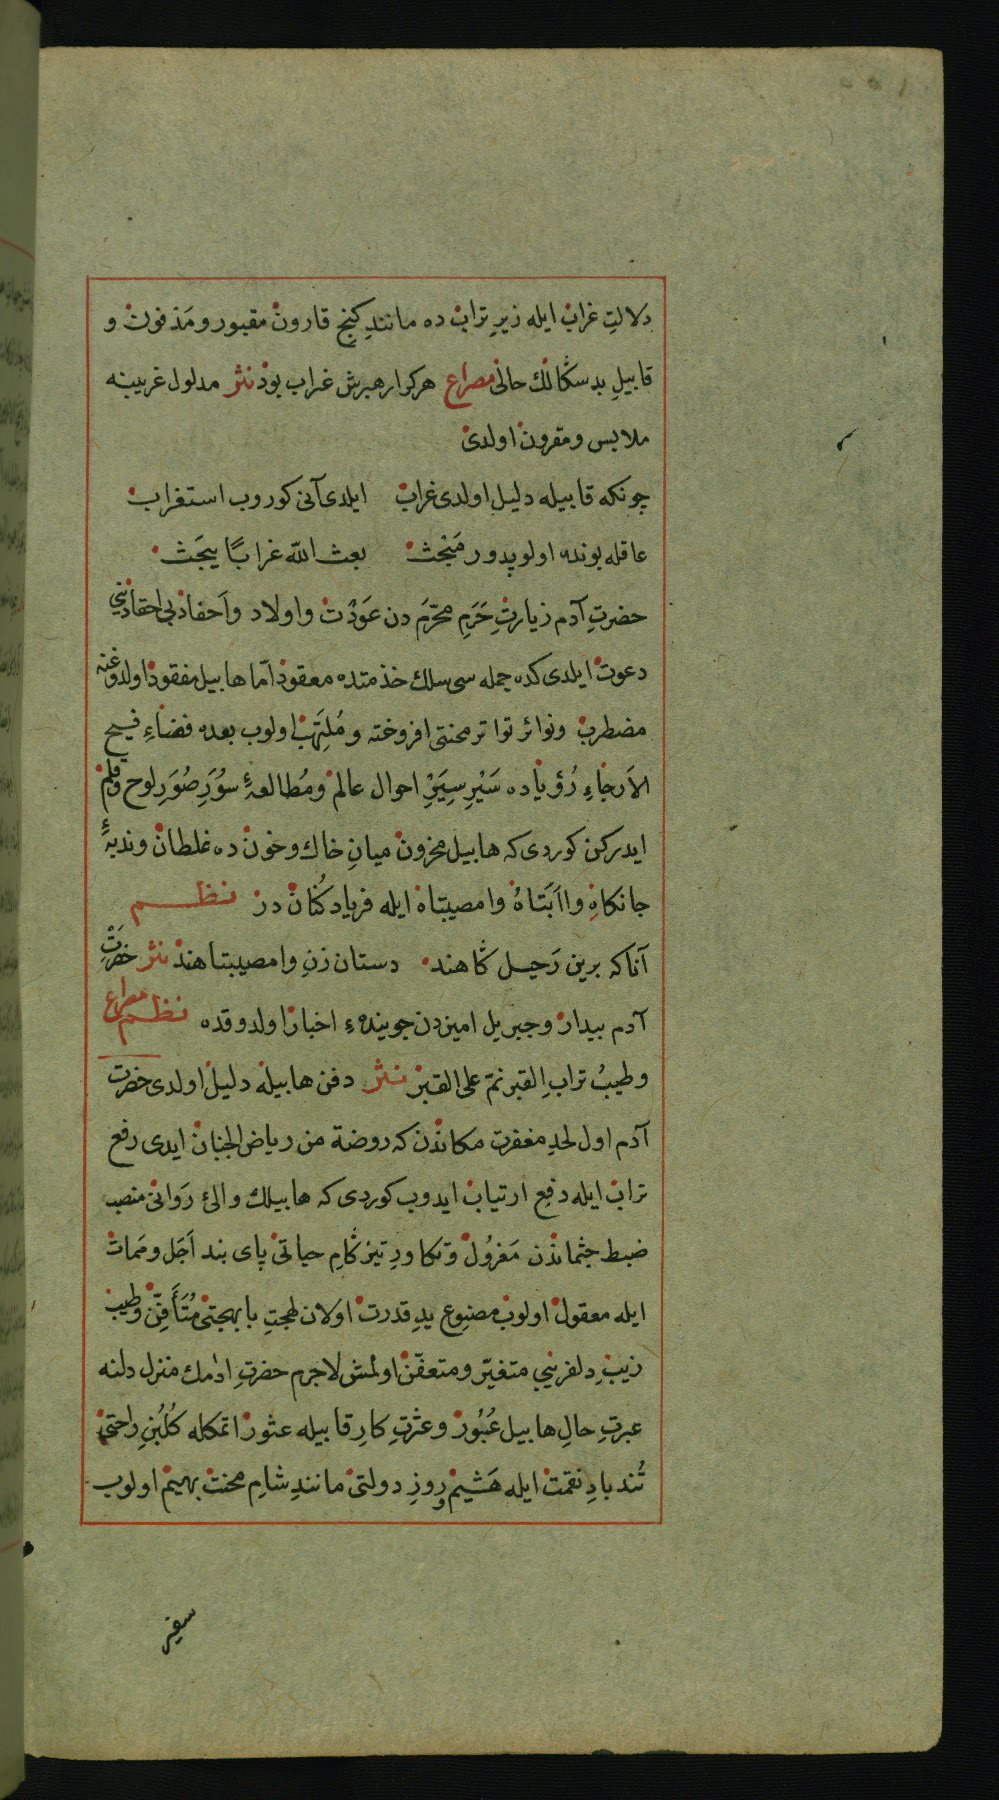 دلالتِ غراب ايله زيرِ تراب ده مانندِ كنجِ قارون مقبور و مدفون و
قابيلِ بدسكالك حالى مصراع هركرا رهبرش غراب بود نثر مدلول غريبنه
ملابس و مقرون اولدى
چونكه قابيله دليل اولدى غراب ايلدى آنى كوروب استغراب
عاقله بونده اولوپدور مَبْحَث بعث الله غرابًا يبحَث
حضرتِ آدم زيارتِ حَرَمِ محرّم دن عَوْدت و اولاد و اَحفاد بى احقادنى
دعوت ايلدى كده جمله سى سلك خدمتده معقود امّا هابيل مفقود اولدوغنه
مضطرب و نوائر تواتر محنتى افروخته و مُلتَهَب اولوب بعده فضاءِ فسيح
الاَرجاءِ رُؤياده سَيْرِ سِيَرِ احوال عالم و مُطالعۀ سُوَرِ صُوَرِ لوح و قلم
ايدركن كوردى كه هابيل محزون ميانِ خاك و خون ده غلطان و ندبۀ
جانكاهِ وا اَبَتاهُ وا مصيبتاه ايله فرياد كُنان در نظم
آناكه برين رَحيل كاهند دستان زنِ وا مصيبتاهند نثر حضرتِ
آدم بيدار و جبريل اميندن جوينده‌ء اخبار اولدوقده نظم مصراع
و طيبُ ترابِ القبر نمّ على القبر نثر دفن هابيله دليل اولدى حضرت
آدم اول لحدِ مغفرت مكاندن كه روضة من رياض الجنان ايدى رفع
تراب ايله دفعِ ارتياب ايدوب كوردى كه هابيلك والئ رَوانى منصب
ضبط جثماندن مَعْزُول و تكاورِ تيزكامِ حياتى پاى بند اَجَل و مَمات
ايله معقول اولوب مصنوع يدِ قدرت اولان لهجتِ با بهجتى مُتَأَفِّن و طيب
زيبِ دلفريبى متغيّر و متعفّن اولمش لاجرم حضرتِ ادمك منزل دلنه
عبرتِ حالِ هابيل عُبُور و عثرتِ كارِ قابيله عثور اتمكله كُلْبُنِ راحتى
تُند بادِ نقمت ايله هَشيم و روزِ دولتى مانندِ شامِ محنت بهيم اولوب
سفير